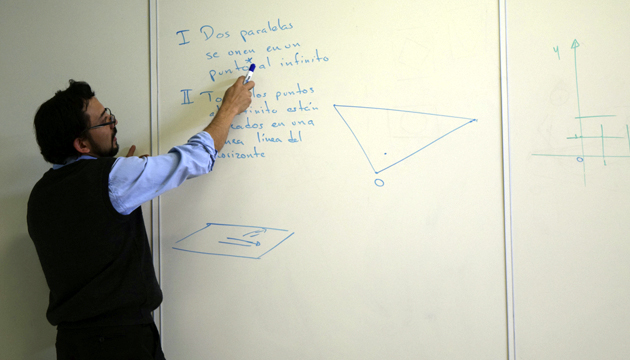 I Dos paralelas
se unen en un
punto* al infinito
II To los puntos
infinito están
eados en una
nea línea del
orizonte
O
y
0